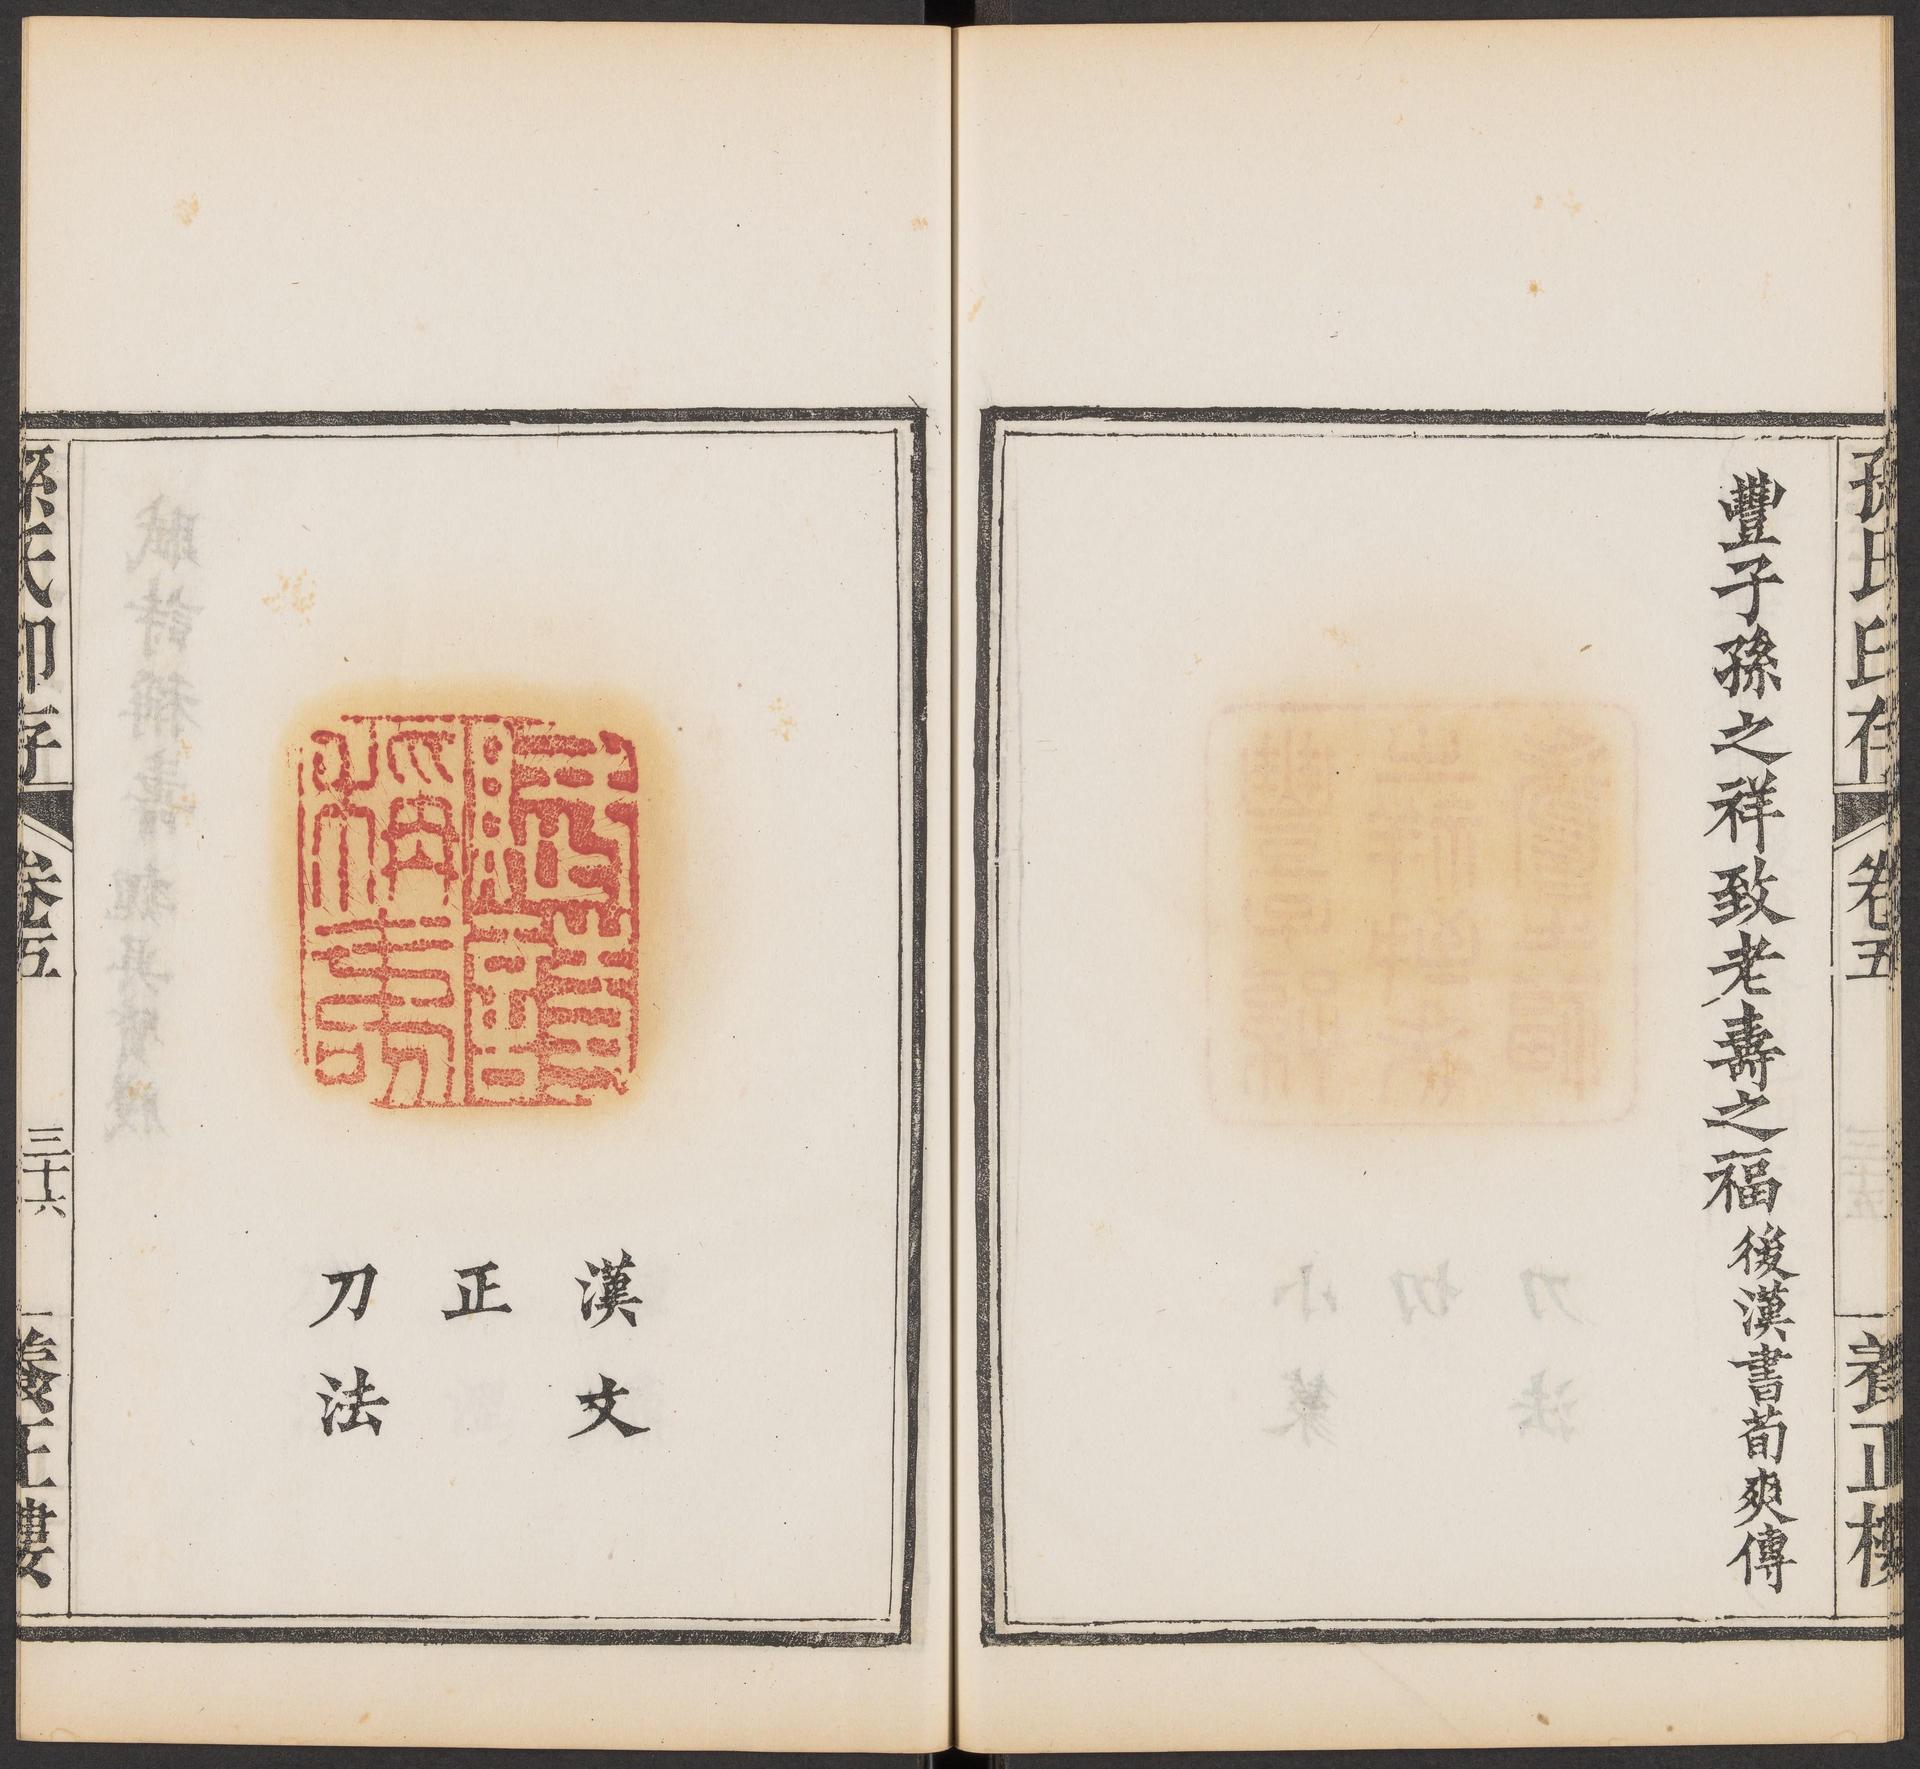 孫氏印存 卷五 養正樓
豐子孫之祥致老壽之福後漢書荀爽傳
漢文
正
刀法
孫氏印存 卷五 三十六 養正樓